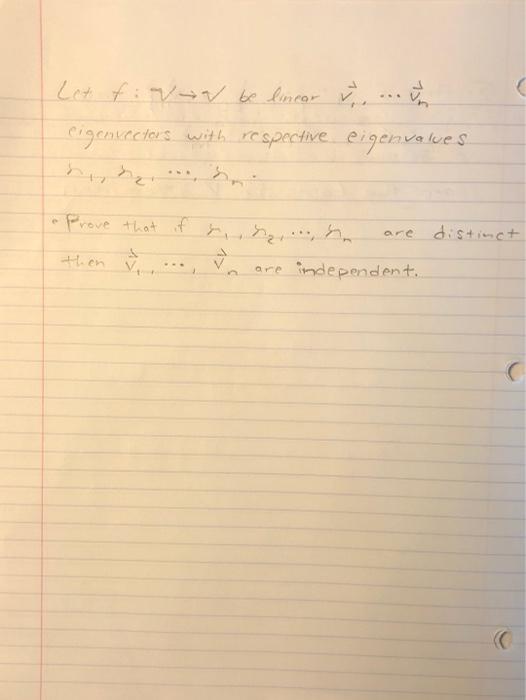 Let f : V → V be linear v⃗₁, ... v⃗ₙ
eigenvectors with respective eigenvalues
λ₁, λ₂, ..., λₙ.
• Prove that if λ₁, λ₂, ..., λₙ are distinct
then v⃗₁, ..., v⃗ₙ are independent.